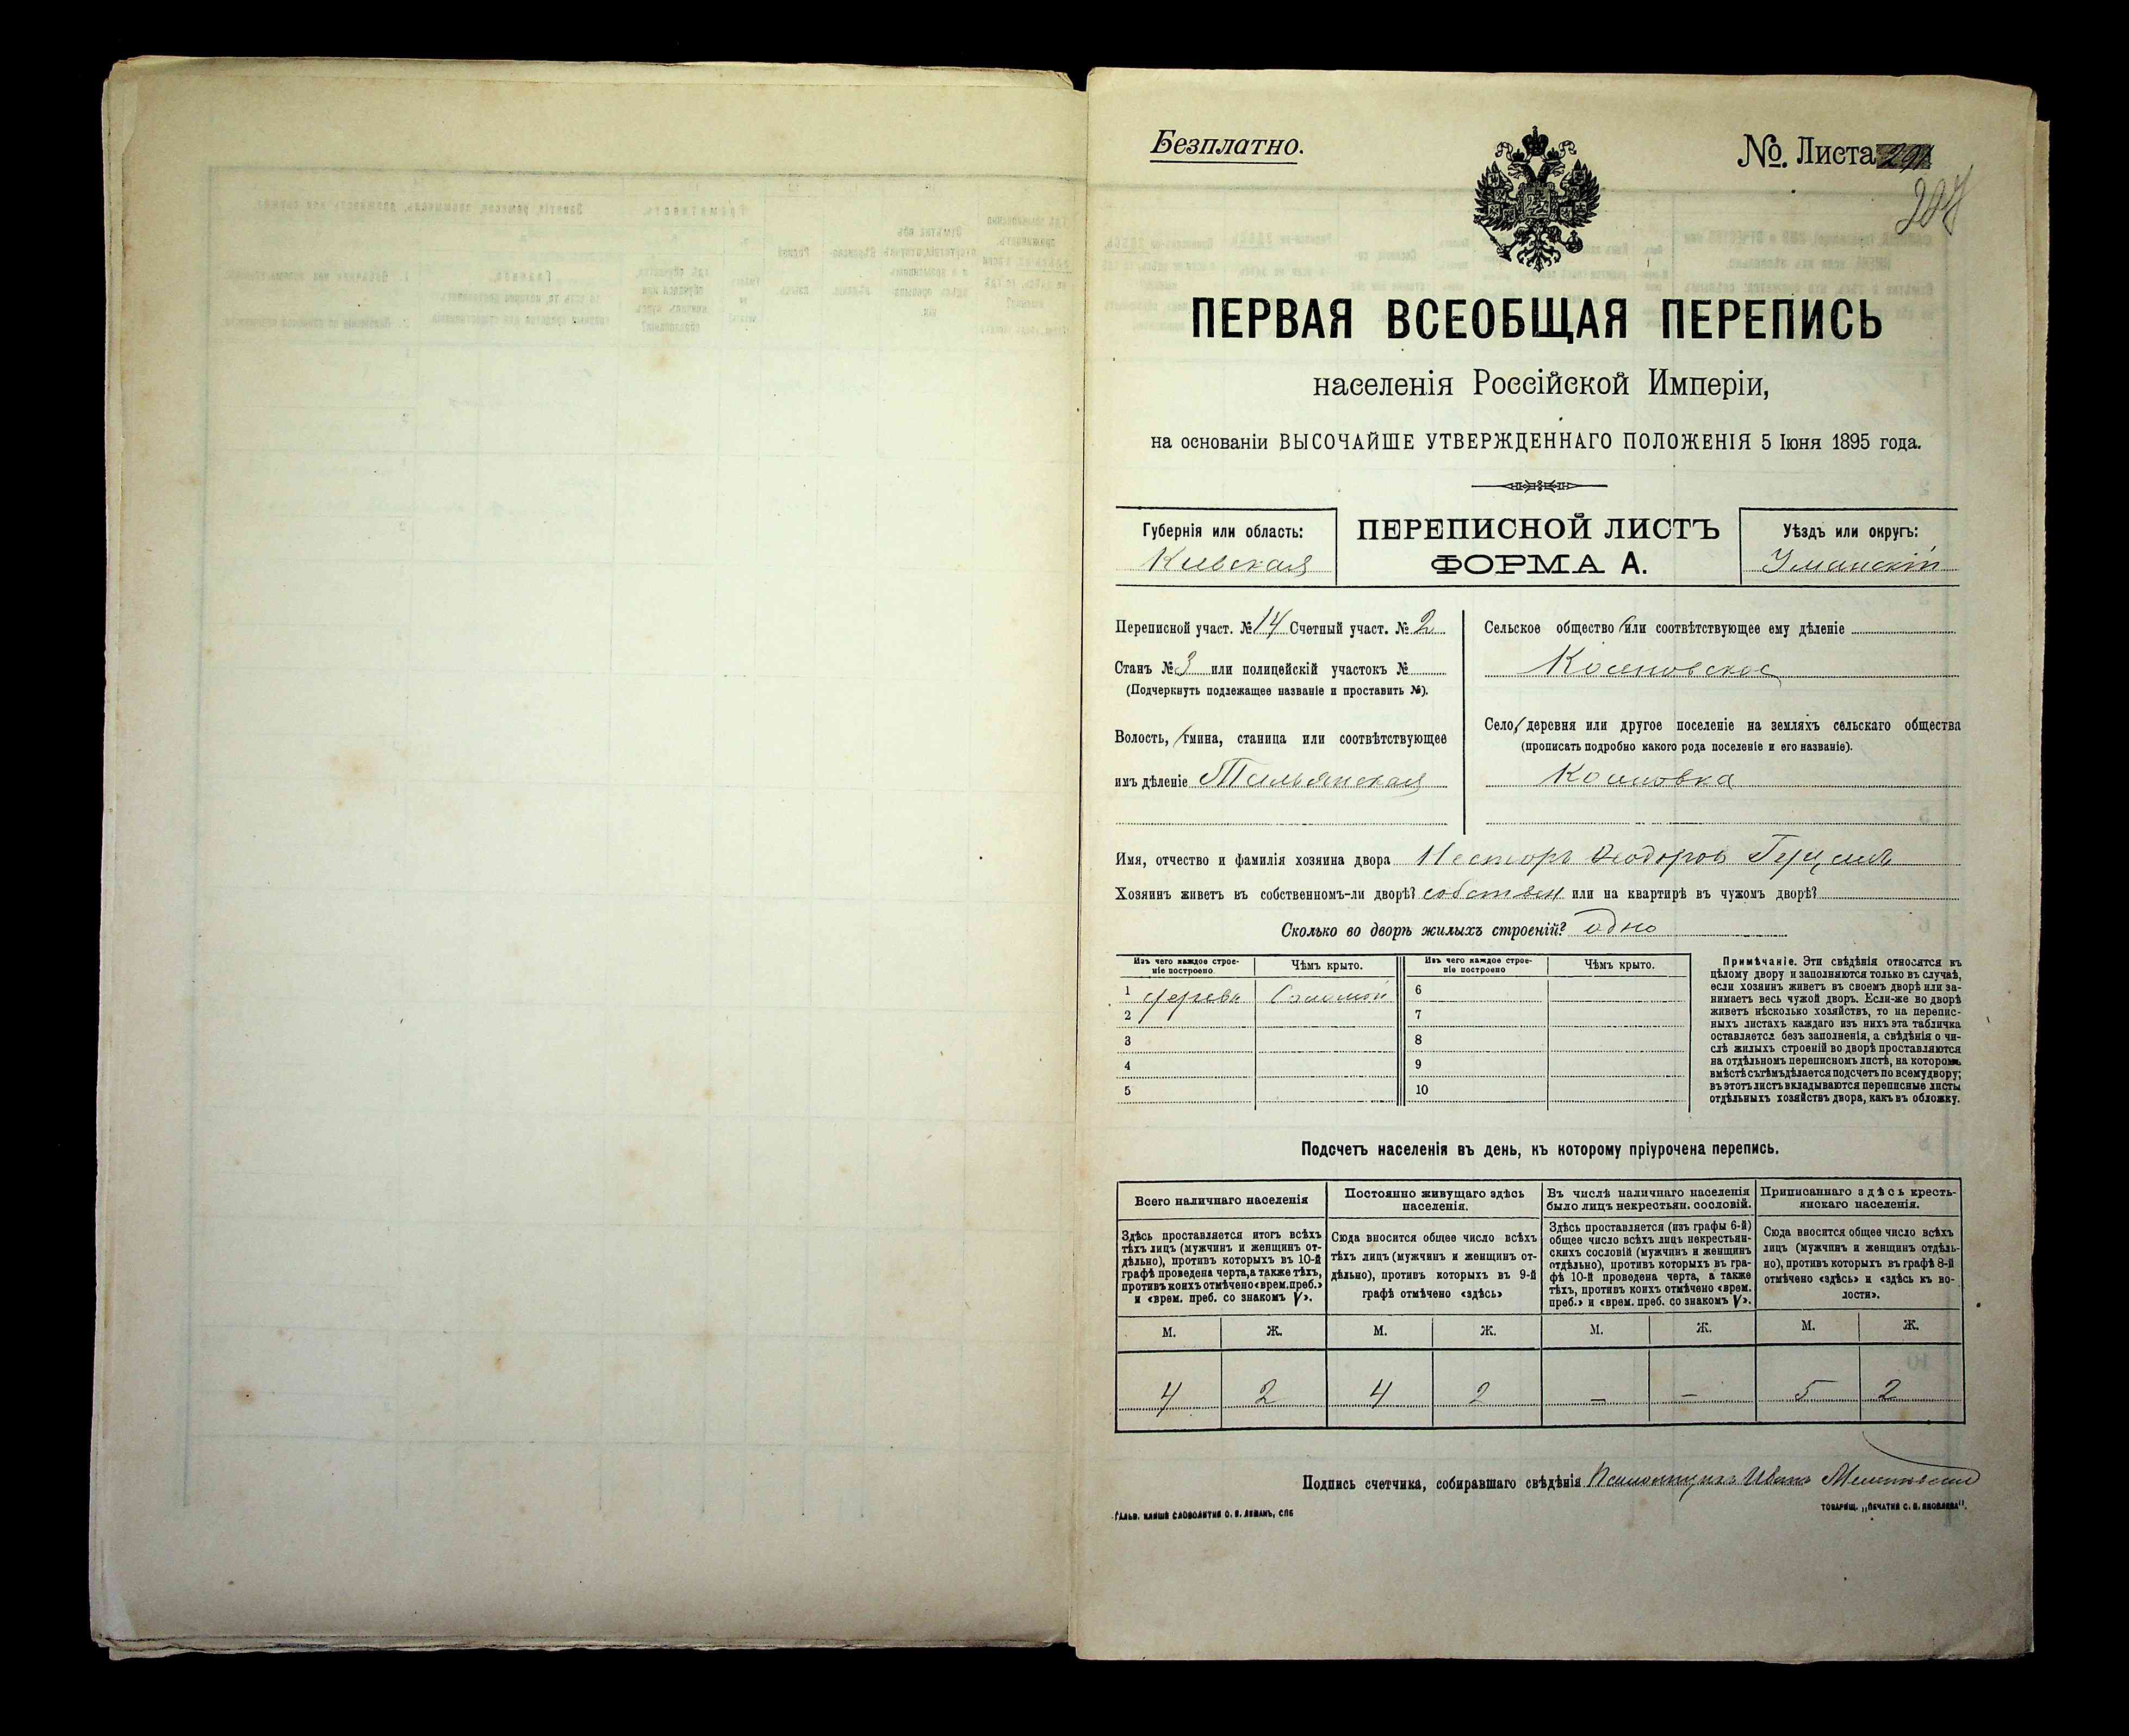 Безплатно.
№. Листа
ПЕРВАЯ ВСЕОБЩАЯ ПЕРЕПИСЬ
населенія Россійской Имперіи,
на основаніи ВЫСОЧАЙШЕ УТВЕРЖДЕННАГО ПОЛОЖЕНІЯ 5 Іюня 1895 года.
Губернія или область:
Кіевская
ПЕРЕПИСНОЙ ЛИСТЪ
ФОРМА А.
Уѣздъ или округъ:
Уманскій
Переписной участ. № 14 Счетный участ. № 2
Станъ № 3 или полицейскій участокъ №
(Подчеркнуть подлежащее названіе и проставить №).
Волость, гмина, станица или соотвѣтствующее
имъ дѣленіе Тальянская
Сельское общество или соотвѣтствующее ему дѣленіе
Село, деревня или другое поселеніе на земляхъ сельскаго общества
(прописать подробно какого рода поселеніе и его названіе).
Имя, отчество и фамилія хозяина двора Несторъ Феодоровъ
Хозяинъ живетъ въ собственномъ-ли дворѣ? собствен или на квартирѣ въ чужомъ дворѣ?
Сколько во дворѣ жилыхъ строеній? одно
Изъ чего каждое строе-
ніе построено
Чѣмъ крыто.
Изъ чего каждое строе-
ніе построено
Чѣмъ крыто.
1 дерева Соломой
2
3
4
5
6
7
8
9
10
Примѣчаніе. Эти свѣдѣнія относятся къ
цѣлому двору и заполняются только въ случаѣ,
если хозяинъ живетъ въ своемъ дворѣ или за-
нимаетъ весь чужой дворъ. Если-же во дворѣ
живетъ нѣсколько хозяйствъ, то на перепис-
ныхъ листахъ каждаго изъ нихъ эта табличка
оставляется безъ заполненія, а свѣдѣнія о чи-
слѣ жилыхъ строеній во дворѣ проставляются
на отдѣльномъ переписномъ листѣ, на которомъ
вмѣстѣ съ тѣмъ дѣлается подсчетъ по всему двору;
въ этотъ листъ вкладываются переписные листы
отдѣльныхъ хозяйствъ двора, какъ въ обложку.
Подсчетъ населенія въ день, къ которому пріурочена перепись.
Всего наличнаго населенія
Здѣсь проставляется итогъ всѣхъ
тѣхъ лицъ (мужчинъ и женщинъ от-
дѣльно), противъ которыхъ въ 10-й
графѣ проведена черта, а также тѣхъ,
противъ коихъ отмѣчено «врем. преб.»
и «врем. преб. со знакомъ V».
Постоянно живущаго здѣсь
населенія.
Сюда вносится общее число всѣхъ
тѣхъ лицъ (мужчинъ и женщинъ от-
дѣльно), противъ которыхъ въ 9-й
графѣ отмѣчено «здѣсь»
Въ числѣ наличнаго населенія
было лицъ некрестьян. сословій.
Здѣсь проставляется (изъ графы 6-й)
общее число всѣхъ лицъ некрестьян-
скихъ сословій (мужчинъ и женщинъ
отдѣльно), противъ которыхъ въ гра-
фѣ 10-й проведена черта, а также
тѣхъ, противъ коихъ отмѣчено «врем.
преб.» и «врем. преб. со знакомъ V».
Приписаннаго здѣсь кресть-
янскаго населенія.
Сюда вносится общее число всѣхъ
лицъ (мужчинъ и женщинъ отдѣль-
но), противъ которыхъ въ графѣ 8-й
отмѣчено «здѣсь» и «здѣсь къ во-
лости».
М. Ж. М. Ж. М. Ж. М. Ж.
4 2 4 2 – – 5 2
Подпись счетчика, собиравшаго свѣдѣнія Псаломщикъ Иванъ
ГАЛЬВ. КЛИШЕ СЛОВОЛИТНИ О. И. ЛЕМАНЪ, СПБ
ТОВАРИЩ. „ПЕЧАТНЯ С. П. ЯКОВЛЕВА“.